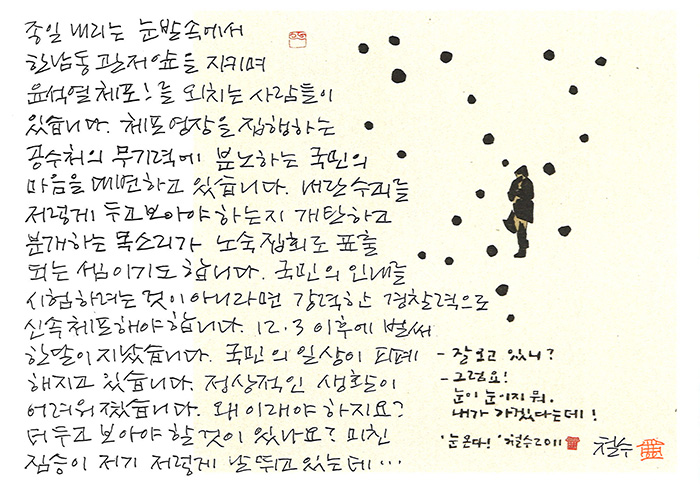 종일 내리는 눈발속에서
한남동 관저앞을 지키며
윤석열 체포!를 외치는 사람들이
있습니다. 체포영장을 집행하는
공수처의 무기력에 분노하는 국민의
마음을 대변하고 있습니다. 내란수괴를
저렇게 두고보아야 하는지 개탄하고
분개하는 목소리가 노숙집회로 표출
되는 셈이기도 합니다. 국민의 인내를
시험하려는 것이 아니라면 강력한 경찰력으로
신속체포해야 합니다. 12.3 이후에 벌써
한달이 지났습니다. 국민의 일상이 피폐
해지고 있습니다. 정상적인 생활이
어려워졌습니다. 왜 이래야 하지요?
더 두고 보아야 할 것이 있나요? 미친
짐승이 저기 저렇게 날뛰고 있는데…
- 잘 보고 있니?
- 그럼요!
눈이 눈이지 뭐.
내가 가겠다는데!
'눈온다!' 철수 2011
철수